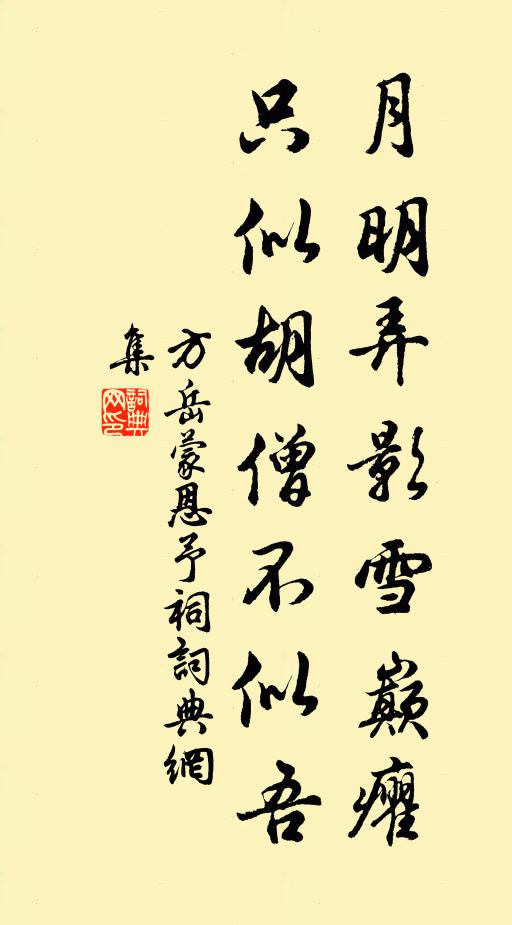 月明弄影雪巔癯
只似胡僧不似吾
方岳蒙恩予祠詞典網
集
詞典
网印